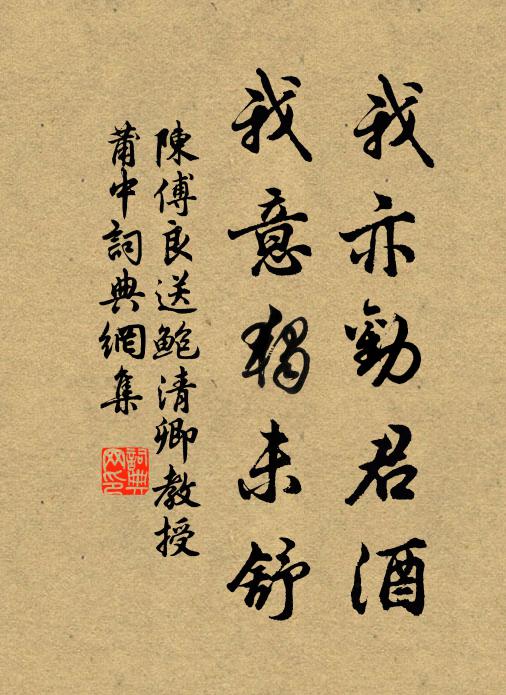 我亦勸君酒
我意獨未舒
陳傅良送鮑清卿教授
莆中詞典網集
詞典
网印